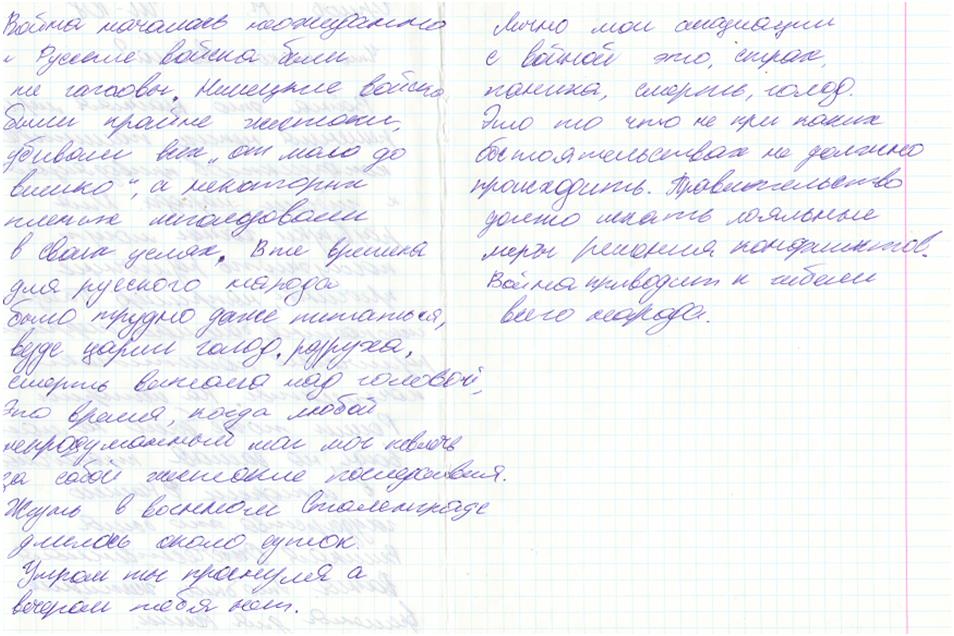 Война началась неожиданно
и Русские войска были
не гатовы. Немецкие войска
были крайне жестоки,
убивали всех "от мало до
велико", а некоторых
пленых исползовали
в своих целях. В те времена
для русского народа
было трудно даже питаться,
везде царил голод, разруха,
смерть витала над головой,
Это время, когда любой
непродуманный шаг мог повлечь
за собой жестокие последствия.
Жизнь в военном Сталенграде
длилась около суток.
Утром ты проснулся а
вечером тебя нет.
Лично мои ассоциации
с войной это, страх,
паника, смерть, голод.
Это то что не при каких
обстоятельствах не должно
происходить. Правительство
должно искать лояльные
меры решения конфликтов.
Война приводит к гибели
всего народа.